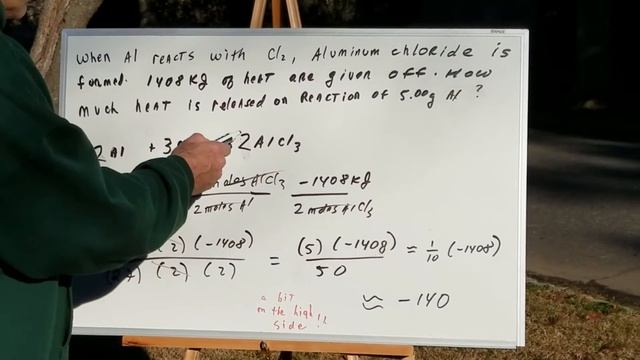 When Al reacts with Cl2, Aluminum chloride is
formed. 1408 Kg of heat are given off. How
much heat is released on reaction of 5.00g Al ?
2Al + 3 2AlCl3
moles AlCl3 -1408Kg
2 moles Al 2 moles AlCl3
2) (-1408) = (5) (-1408) ≈ 1/10 (-1408)
(2) (2) 50
≈ -140
a bit
on the high
side !!